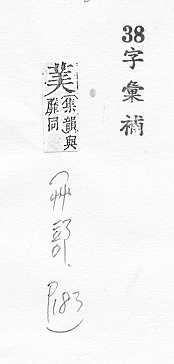 38字彙補
集韻與
同
艸部. P183